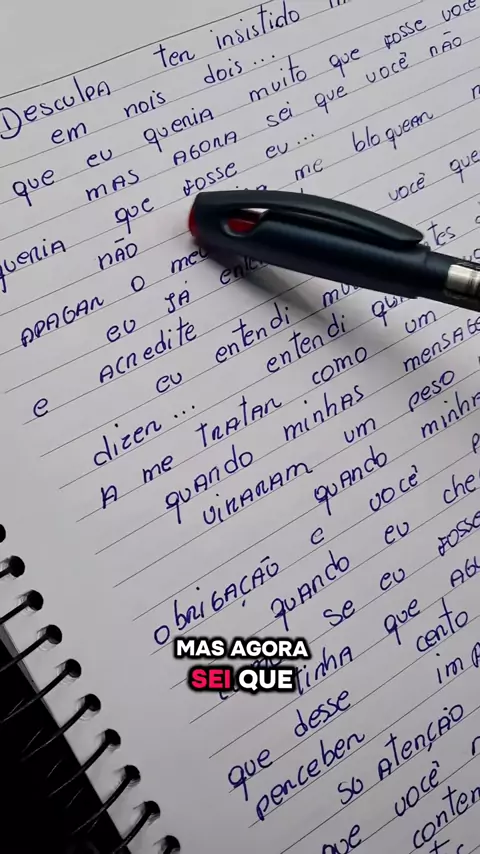 Desculpa ter insistido
em nois dois...
que eu queria muito que fosse você
mas agora sei que você não
queria que fosse eu...
não me bloquear
apagar o meu você que
eu já
e acredite
eu entendi
dizer... entendi
a me tratar como um
quando minhas mensage
viraram um peso
quando minha
obrigação e você
quando eu che
se eu fosse
tinha que
que desse cento
perceber
so atenção
que você
conten
MAS AGORA
SEI QUE